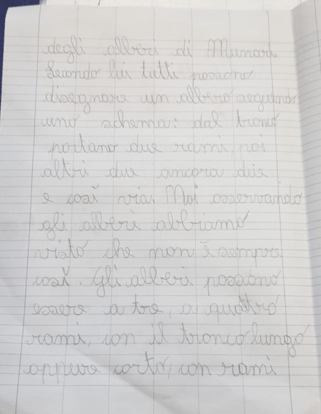 degli alberi di Munari
Secondo lui tutti possono
disegnare un albero seguendo
uno schema: dal tronco
partono due rami, poi
altri due ancora due
e così via. Noi osservando
gli alberi abbiamo
visto che non è sempre
così. Gli alberi possono
essere a tre, a quattro
rami, con il tronco lungo
oppure corto, con rami